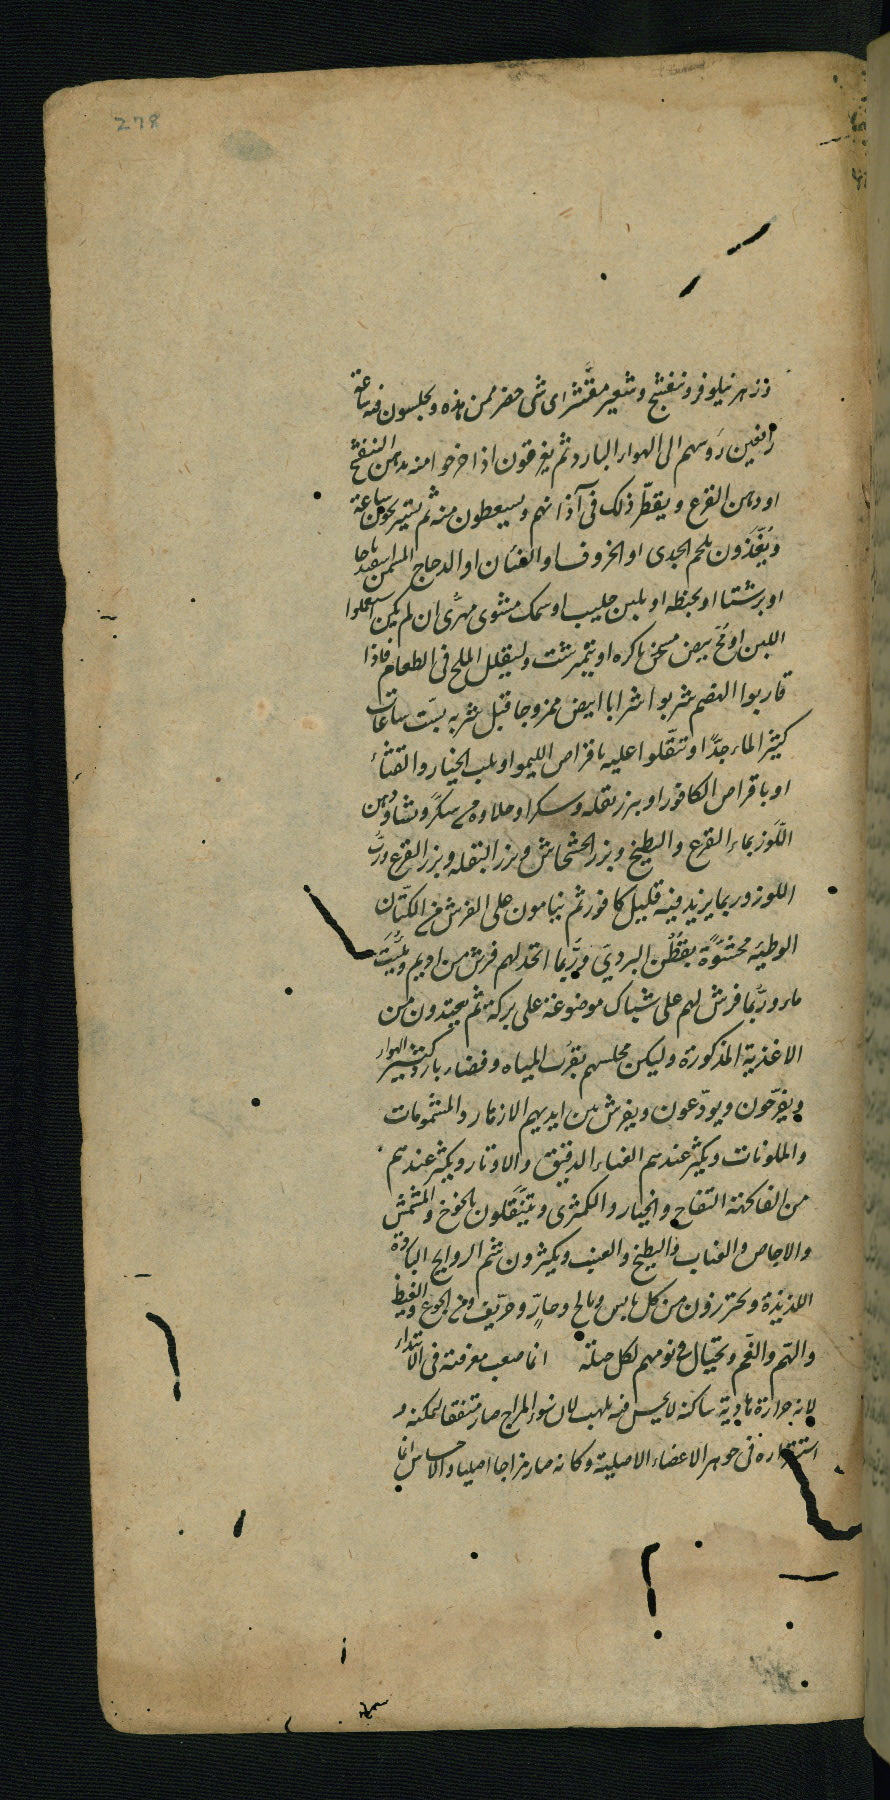 278
وزهر نيلوفر وبنفشج وشعير مقشر اى شى حضر من هذه ويجلسون فيه ساعة
رافعين رؤسهم الى الهواء البارد ثم يغرقون اذا خرجوا منه بدهن البنفشج
او دهن القرع ويقطر ذلك فى آذانهم ويسعطون منه ثم يستريحون ساعة
ويُغَذَّون بلحم الجدى او الخروف او الضئان او الدجاج المسمن اسفيدباجا
او برشتا او بحنطه او بلبن حليب او سمك مشوى مهرى ان لم يكن استعملوا
اللبن او مح بيض مسخن باكره او ينمبرشت وليقلل الملح فى الطعام فاذا
قاربوا الهضم شربوا شرابا ابيض ممزوجا قبل شربه بست ساعات
كثير الماء جدًّا وتنقّلوا عليه باقراص الليمو او بلب الخيار والقثاء
او باقراص الكافور او ببزر بقله وسكر او حلاوه من سكر ونشا ودهن
اللّوز بماء القرع والبطيخ وبزر الخشخاش وبزر البقله وبزر القرع ورُبّ
اللوز وربما يزيد فيه قليل كافور ثم ينامون على الفرش من الكتّان
الوطيه محشوّة بقُطُن البردى وربّما اتخذ لهم فرش من اديم ويُبَيَّت
ماء وربّما فرش لهم على شباك موضوعة على بركة ثم يغتذون من
الاغذية المذكورة وليكن مجلسهم بقُرب المياه وفضاء بارد كثير الهواء
ويفرّحون ويودّعون ويفرش بين ايديهم الازهار والمشمومات
والملونات ويكثر عندهم الغناء الدقيق والاوتار ويكثر عندهم
من الفاكهة التفاح والخيار والكمثرى ويتنقّلون بالخوخ والمشمش
والاجاص والعناب والبطيخ والعنب ويكثرون شم الروايح الباردة
اللذيذة ويحترزون من كل يابس ومالح وحارّ وحرّيف ومن الجوع والغيظ
والهّم والغّم ويحتال فى نومهم لكل حيلة انما صعب معرفته فى الابتداء
لانه حرارة هادية ساكنة لا يحس فيه بلهب لان سوء المزاج صار متفقا لتمكنه و
استقراره فى جوهر الاعضاء الاصلية وكانه صار مزاجا اصليا والاحساس انما